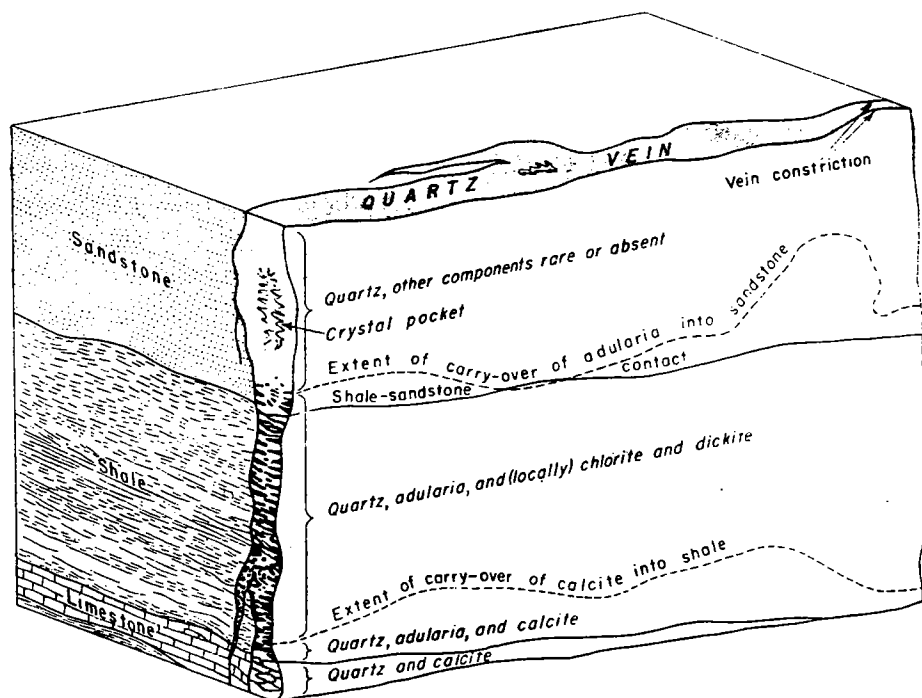 QUARTZ VEIN
Vein constriction
Sandstone
Quartz, other components rare or absent
Crystal pocket
Extent of carry-over of adularia into sandstone
Shale-sandstone contact
Shale
Quartz, adularia, and (locally) chlorite and dickite
Extent of carry-over of calcite into shale
Limestone
Quartz, adularia, and calcite
Quartz and calcite